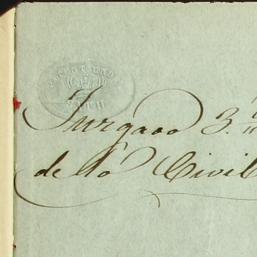 Jurgado 3.º
de lo Civil